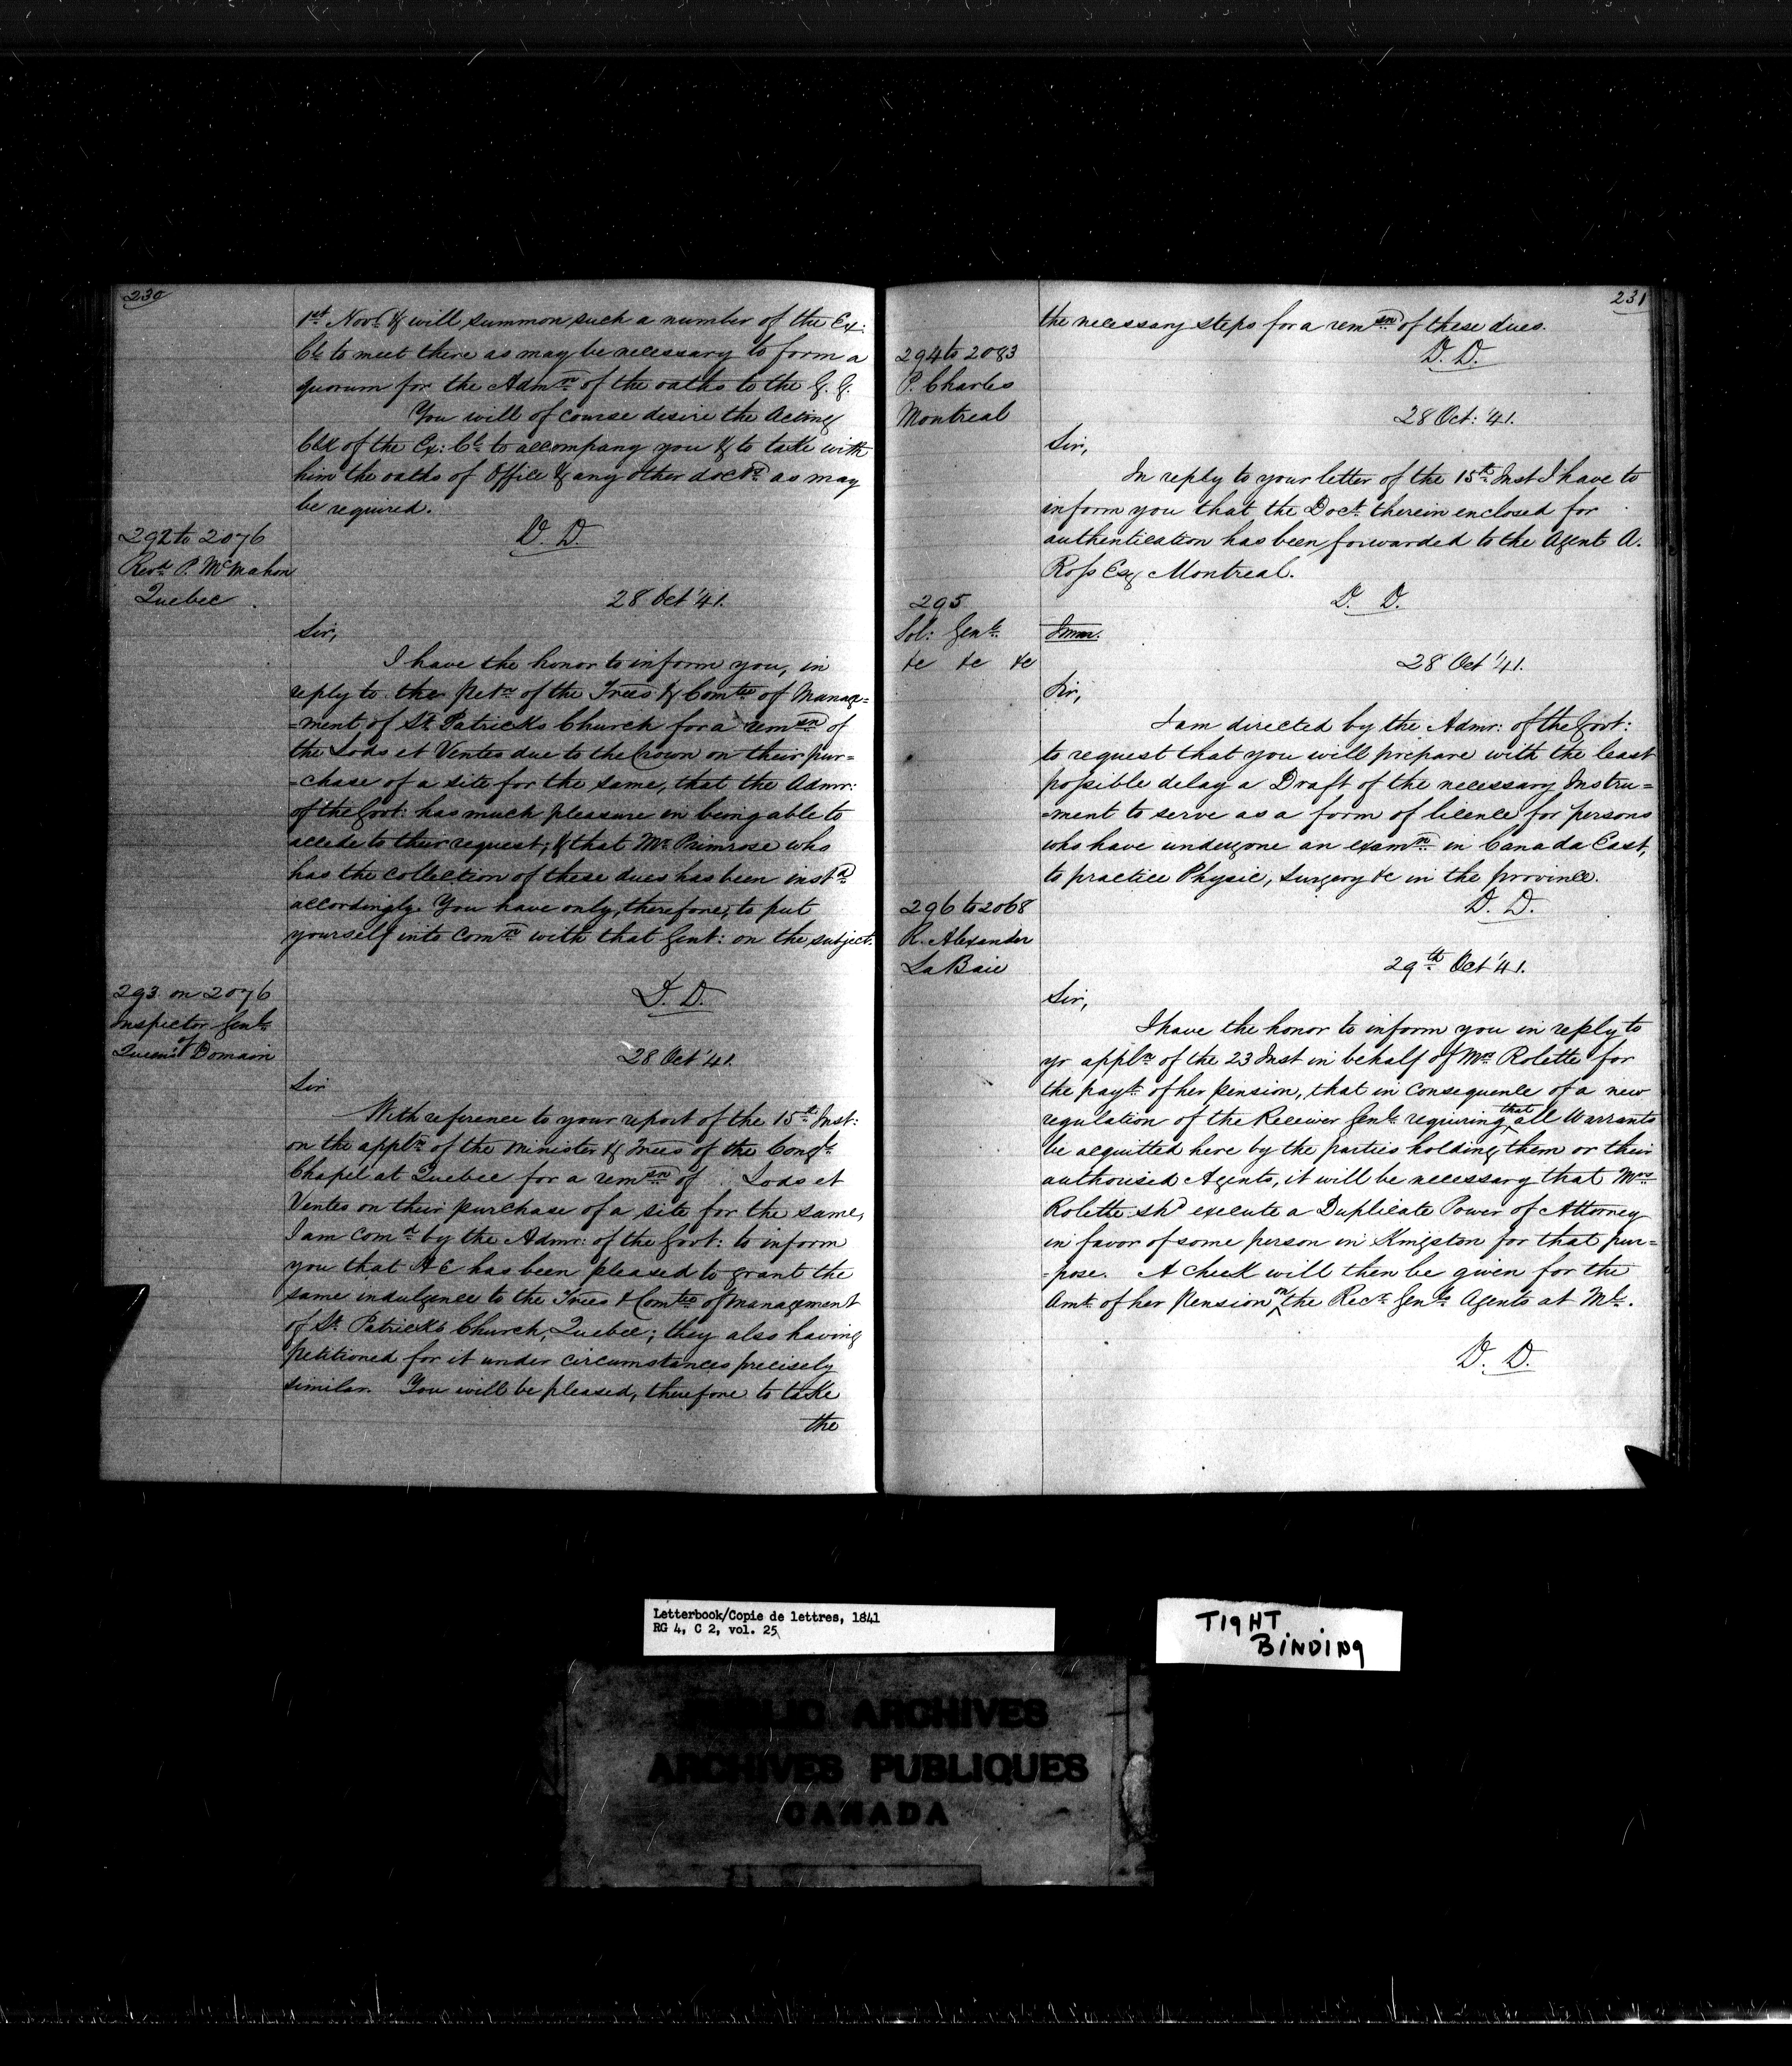 230
1st Novr & will summon such a number of the Ex:
Cl to meet there as may be necessary to form a
quorum for the Admn of the oaths to the G. G.
You will of course desire the Acting
Clk of the Ex: Cl to accompany you & to take with
him the oaths of Office & any other docts as may
be required.
D. D.
292 to 2076
Revd P. McMahon
Quebec
28 Oct '41.
Sir,
I have the honor to inform you, in
reply to the Petn of the Trees & Comtee of Manage=
=ment of St. Patricks Church for a remsn of
the Lods et Ventes due to the Crown on their pur=
=chase of a site for the same, that the Admr:
of the Govt: has much pleasure in being able to
accede to their request; & that Mr Primrose who
has the collection of these dues has been instd
accordingly. You have only, therefore, to put
yourself into comn with that Gent: on the subject.
D. D.
293 on 2076
Inspector Genl
of
Queen's Domain
28 Oct '41.
Sir
With reference to your report of the 15th Inst:
on the appln of the Minister & Trees of the Congl
Chapel at Quebec for a remsn of Lods et
Ventes on their purchase of a site for the same,
I am comd by the Admr: of the Govt: to inform
you that HE has been pleased to grant the
same indulgence to the Trees & Comtee of Management
of St. Patricks Church, Quebec; they also having
petitioned for it under circumstances precisely
similar. You will be pleased, therefore to take
the
231
the necessary steps for a remsn of these dues.
D. D.
294 to 2083
P. Charles
Montreal
28 Oct: '41.
Sir,
In reply to your letter of the 15th Inst I have to
inform you that the Doct. therein enclosed for
authentication has been forwarded to the Agent A.
Ross Esq Montreal.
D. D.
295
Sol: Genl
&c &c &c
Immr.
28 Oct '41.
Sir,
I am directed by the Admr: of the Govt:
to request that you will prepare with the least
possible delay a Draft of the necessary Instru=
=ment to serve as a form of licence for persons
who have undergone an examn in Canada East,
to practice Physic, Surgery &c in the province.
D. D.
296 to 2068
R. Alexander
La Baie
29th Oct '41.
Sir,
I have the honor to inform you in reply to
yr appln of the 23 Inst in behalf of Mrs Rolette for
the payt of her pension, that in consequence of a new
regulation of the Receiver Genl requiring that all Warrants
be acquitted here by the parties holding them or their
authorised Agents, it will be necessary that Mrs
Rolette shd execute a Duplicate Power of Attorney
in favor of some person in Kingston for that pur=
=pose. A check will then be given for the
Amt. of her Pension on the Recr Genls Agents at Ml.
D. D.
Letterbook/Copie de lettres, 1841
RG 4, C 2, vol. 25
TIGHT
BINDING
PUBLIC ARCHIVES
ARCHIVES PUBLIQUES
CANADA